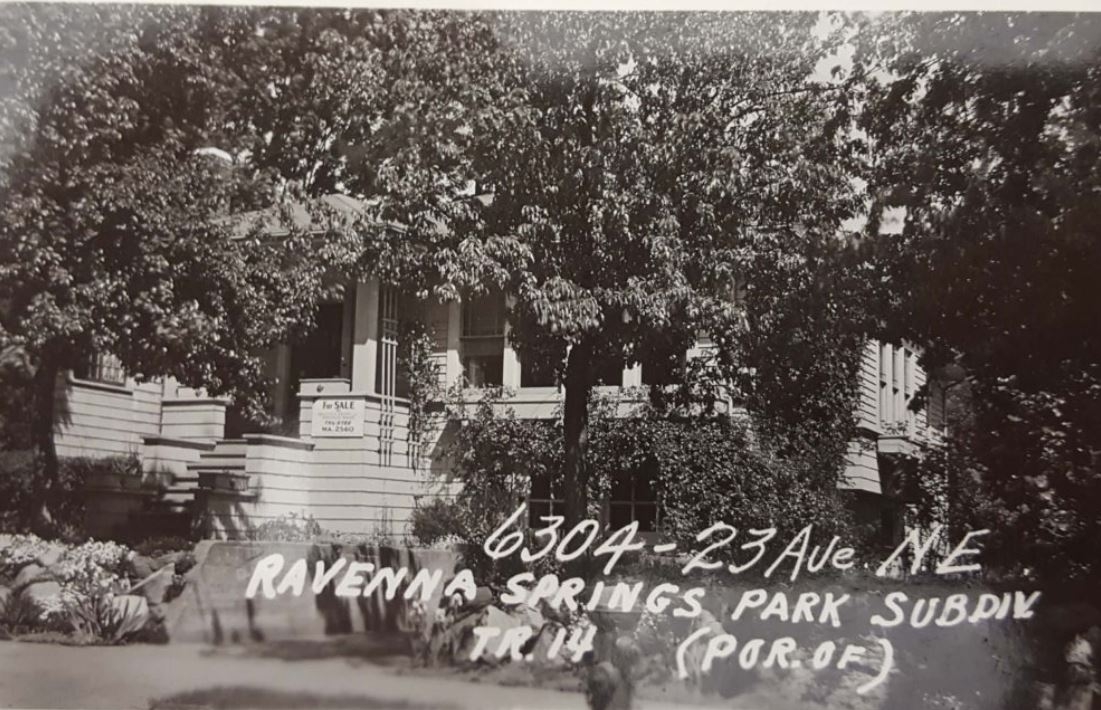 For SALE
MA. 2560
6304-23 Ave. N E
RAVENNA SPRINGS PARK SUBDIV
TR. 14 (POR. OF)